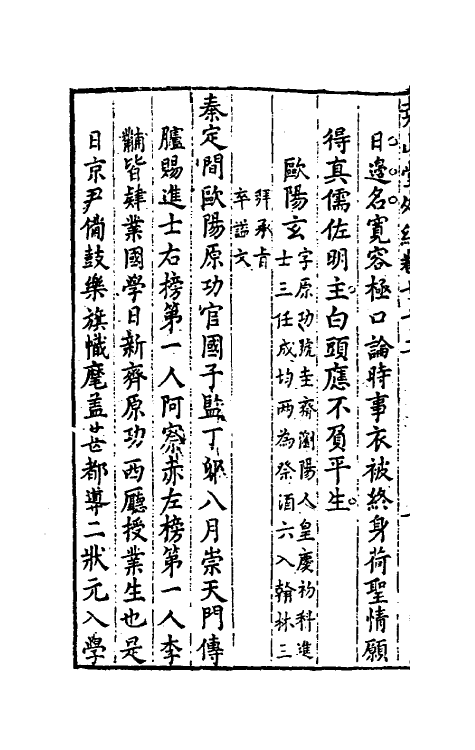 日邊名寬容極口論時事衣被終身荷聖情願
得真儒佐明主白頭應不負平生
歐陽玄
字原功號圭齋瀏陽人皇慶初科進
士三任成均兩為祭酒六入翰林三
拜承旨
卒諡文
秦定間歐陽原功官國子監丁卯八月崇天門傳
臚賜進士右榜第一人阿察赤左榜第一人李
黼皆肄業國學日新齋原功西廳授業生也是
日京尹備鼓樂旗幟麾蓋甚都導二狀元入學